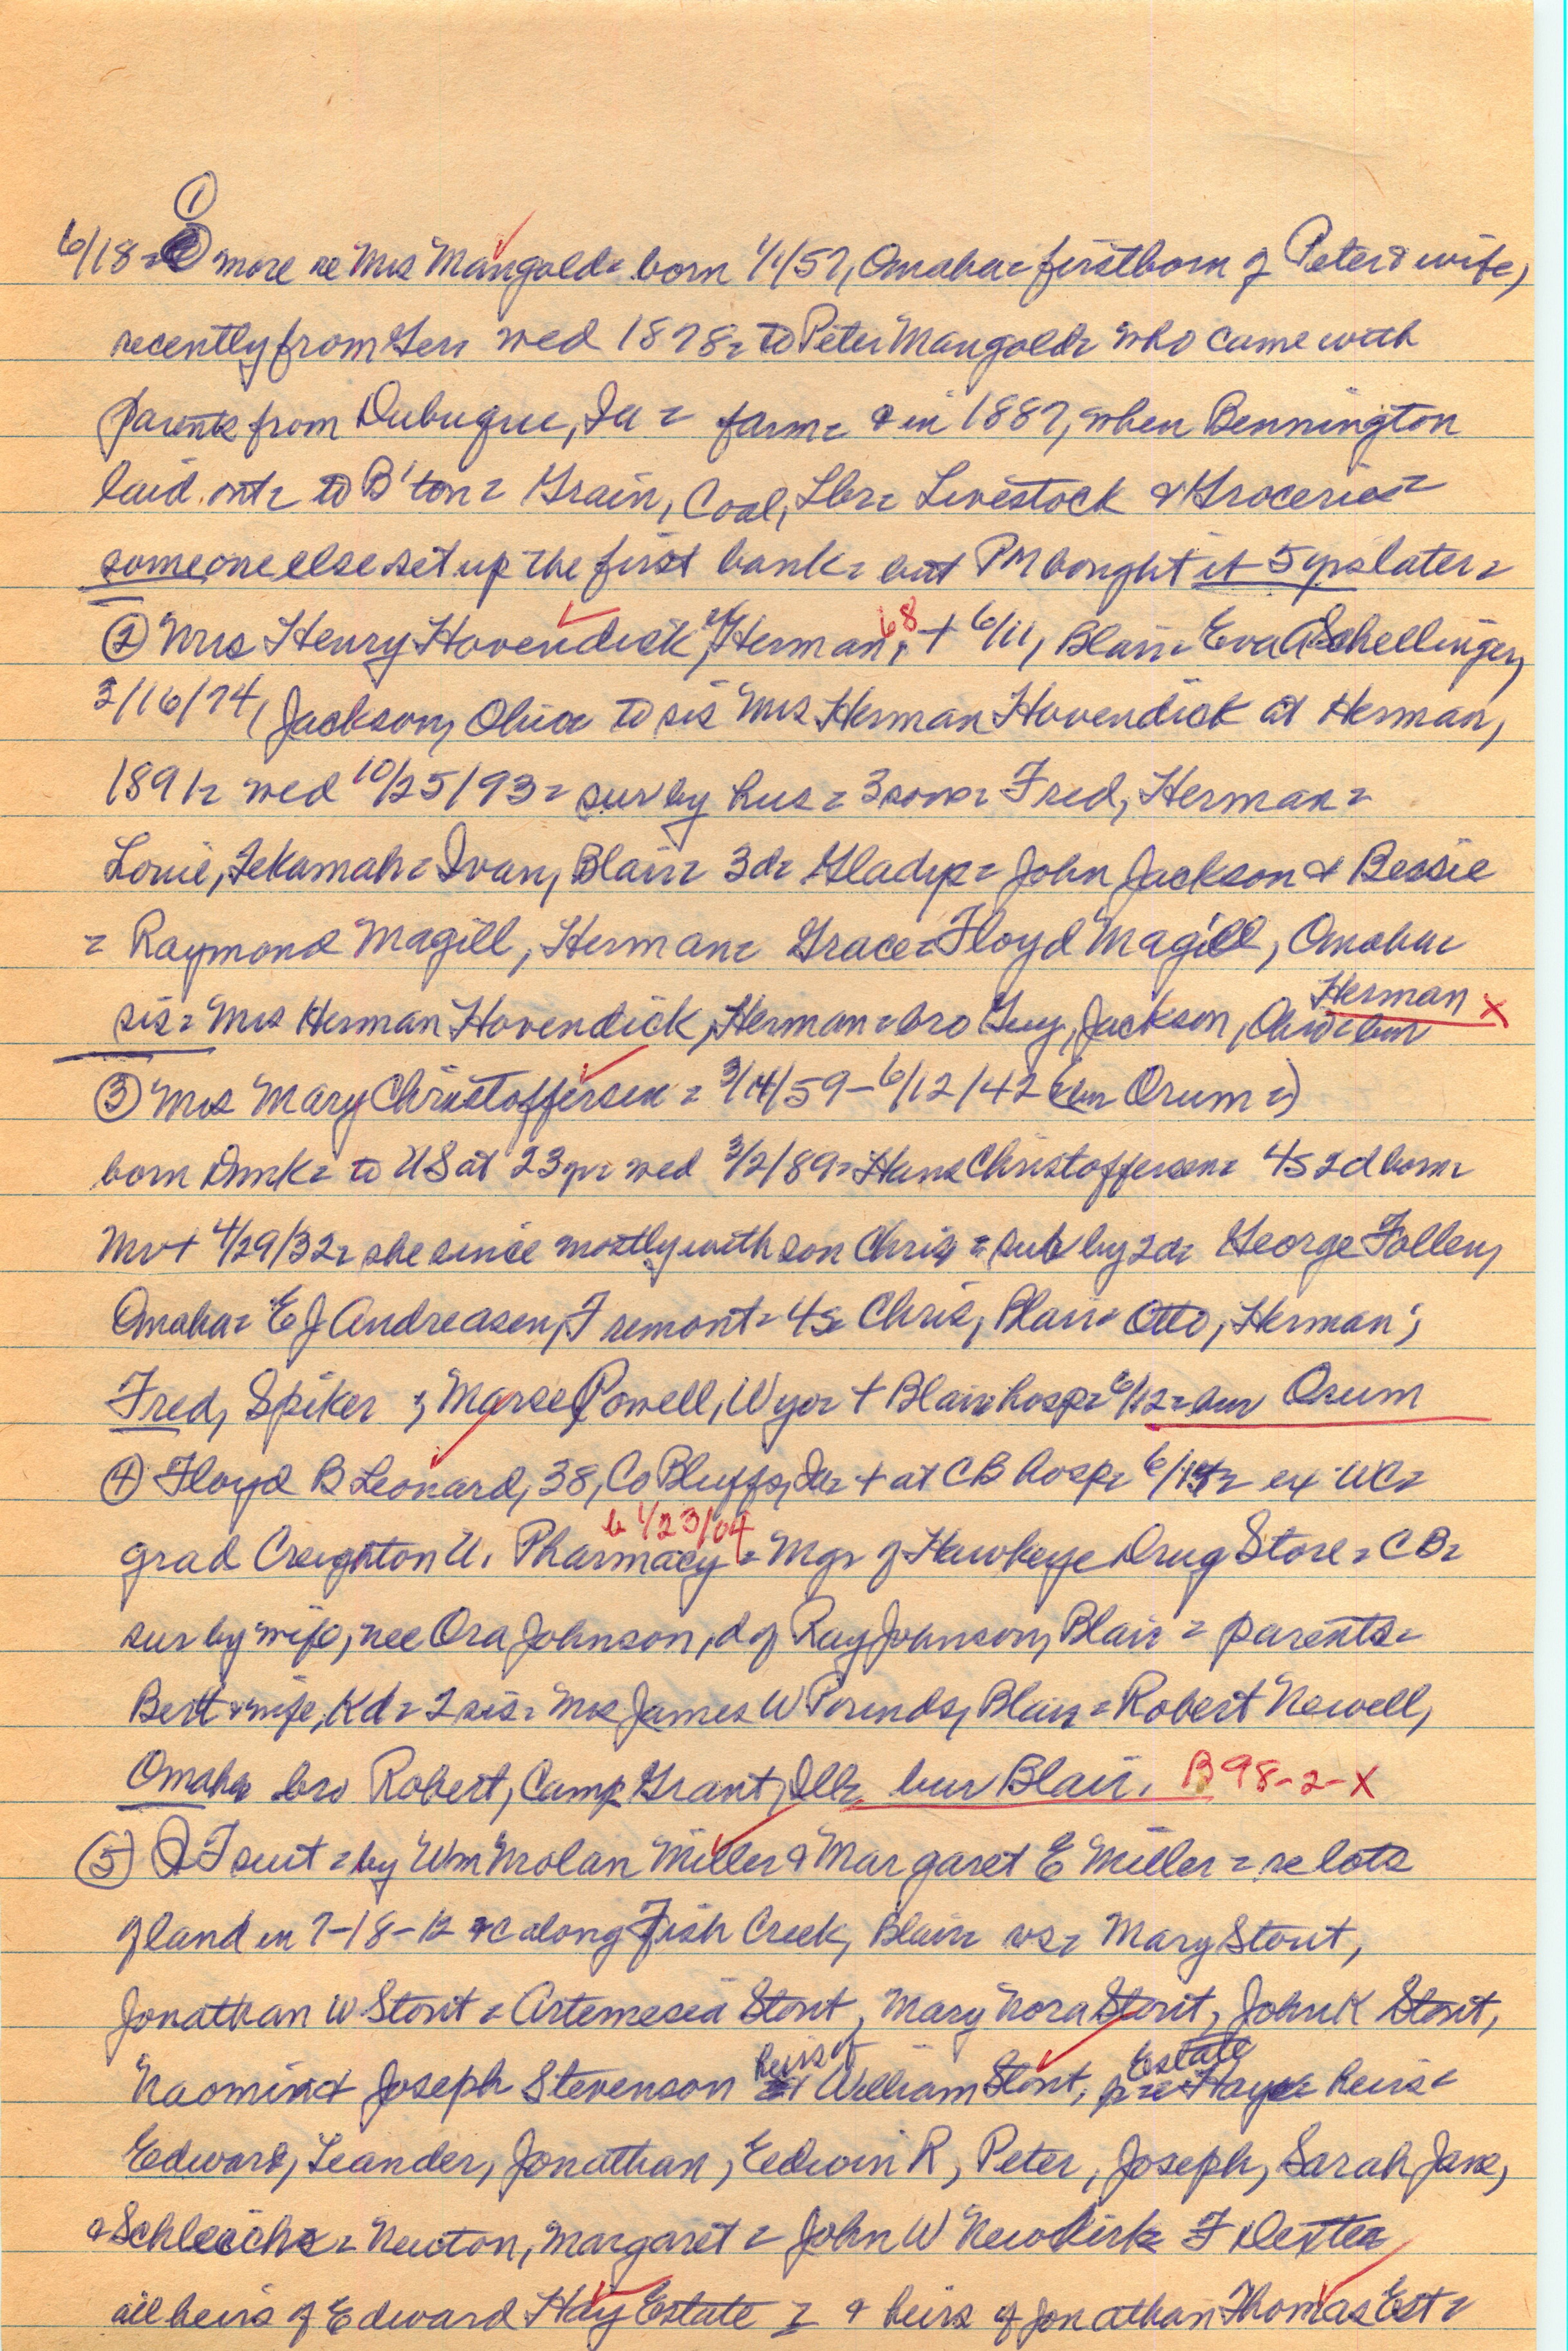 ①
6/18 = more re Mrs Mangold = born 1/1/57, Omaha = firstborn of Peter & wife,
recently from Ger = wed 1878 = to Peter Mangold = who came with
parents from Dubuque, Ia = farm = & in 1887, when Bennington
laid out = to B'ton = Grain, Coal, Lbr = Livestock & Groceries =
someone else set up the first bank = but PM bought it 5 yrs later =
② Mrs Henry Hovendick, of Herman, 68 + 6/11, Blair = Eva A Schellinger,
3/16/74, Jackson, Ohio = to sis Mrs Herman Hovendick at Herman,
1891 = wed 10/25/93 = sur by hus = 3 sons = Fred, Herman =
Louie, Tekamah = Ivan, Blair = 3d = Gladys = John Jackson & Bessie
= Raymond Magill, Herman = Grace = Floyd Magill, Omaha =
Herman x
sis = Mrs Herman Hovendick, Herman = bro Guy, Jackson, Ohio = bur
③ Mrs Mary Christoffersen = 3/14/59 - 6/12/42 (bur Orum =)
born Dnmk = to US at 23 yr = wed 3/2/89 = Hans Christoffersen = 4s 2d born =
Mr + 4/29/32 = she since mostly with son Chris = sur by 2d = George Follen,
Omaha = E J Andreasen, Fremont = 4s = Chris, Blair = Otto, Herman ;
Fred, Spiker ; Powell, Wyo = + Blair hosp = 6/12 = bur Orum
④ Floyd B Leonard, 38, Co Bluffs, Ia = + at CB hosp = 6/15 = ex WC =
b 1/23/04
grad Creighton U. Pharmacy = Mgr of Hawkeye Drug Store = CB =
sur by wife, nee Ora Johnson, d of Ray Johnson, Blair = parents =
Bert & wife, Kd = 2 sis = Mrs James W Pounds, Blair = Robert Newell,
Omaha bro Robert, Camp Grant, Ill = bur Blair. B 98-2-X
⑤ QT suit = by Wm Nolan Miller & Margaret E Miller = re lots
of land in 7-18-12 &c along Fish Creek, Blair = vs = Mary Stout,
Jonathan W Stout = Artemesia Stout, Mary Nora Stout, John K Stout,
heirs of Estate
Naomi & Joseph Stevenson William Stout, Hays = heirs =
Edward, Leander, Jonathan, Edwin R, Peter, Joseph, Sarah Jane,
& = Newton, Margaret = John W Newkirk = F Detter
all heirs of Edward Hay Estate = & heirs of Jonathan Thomas Est =